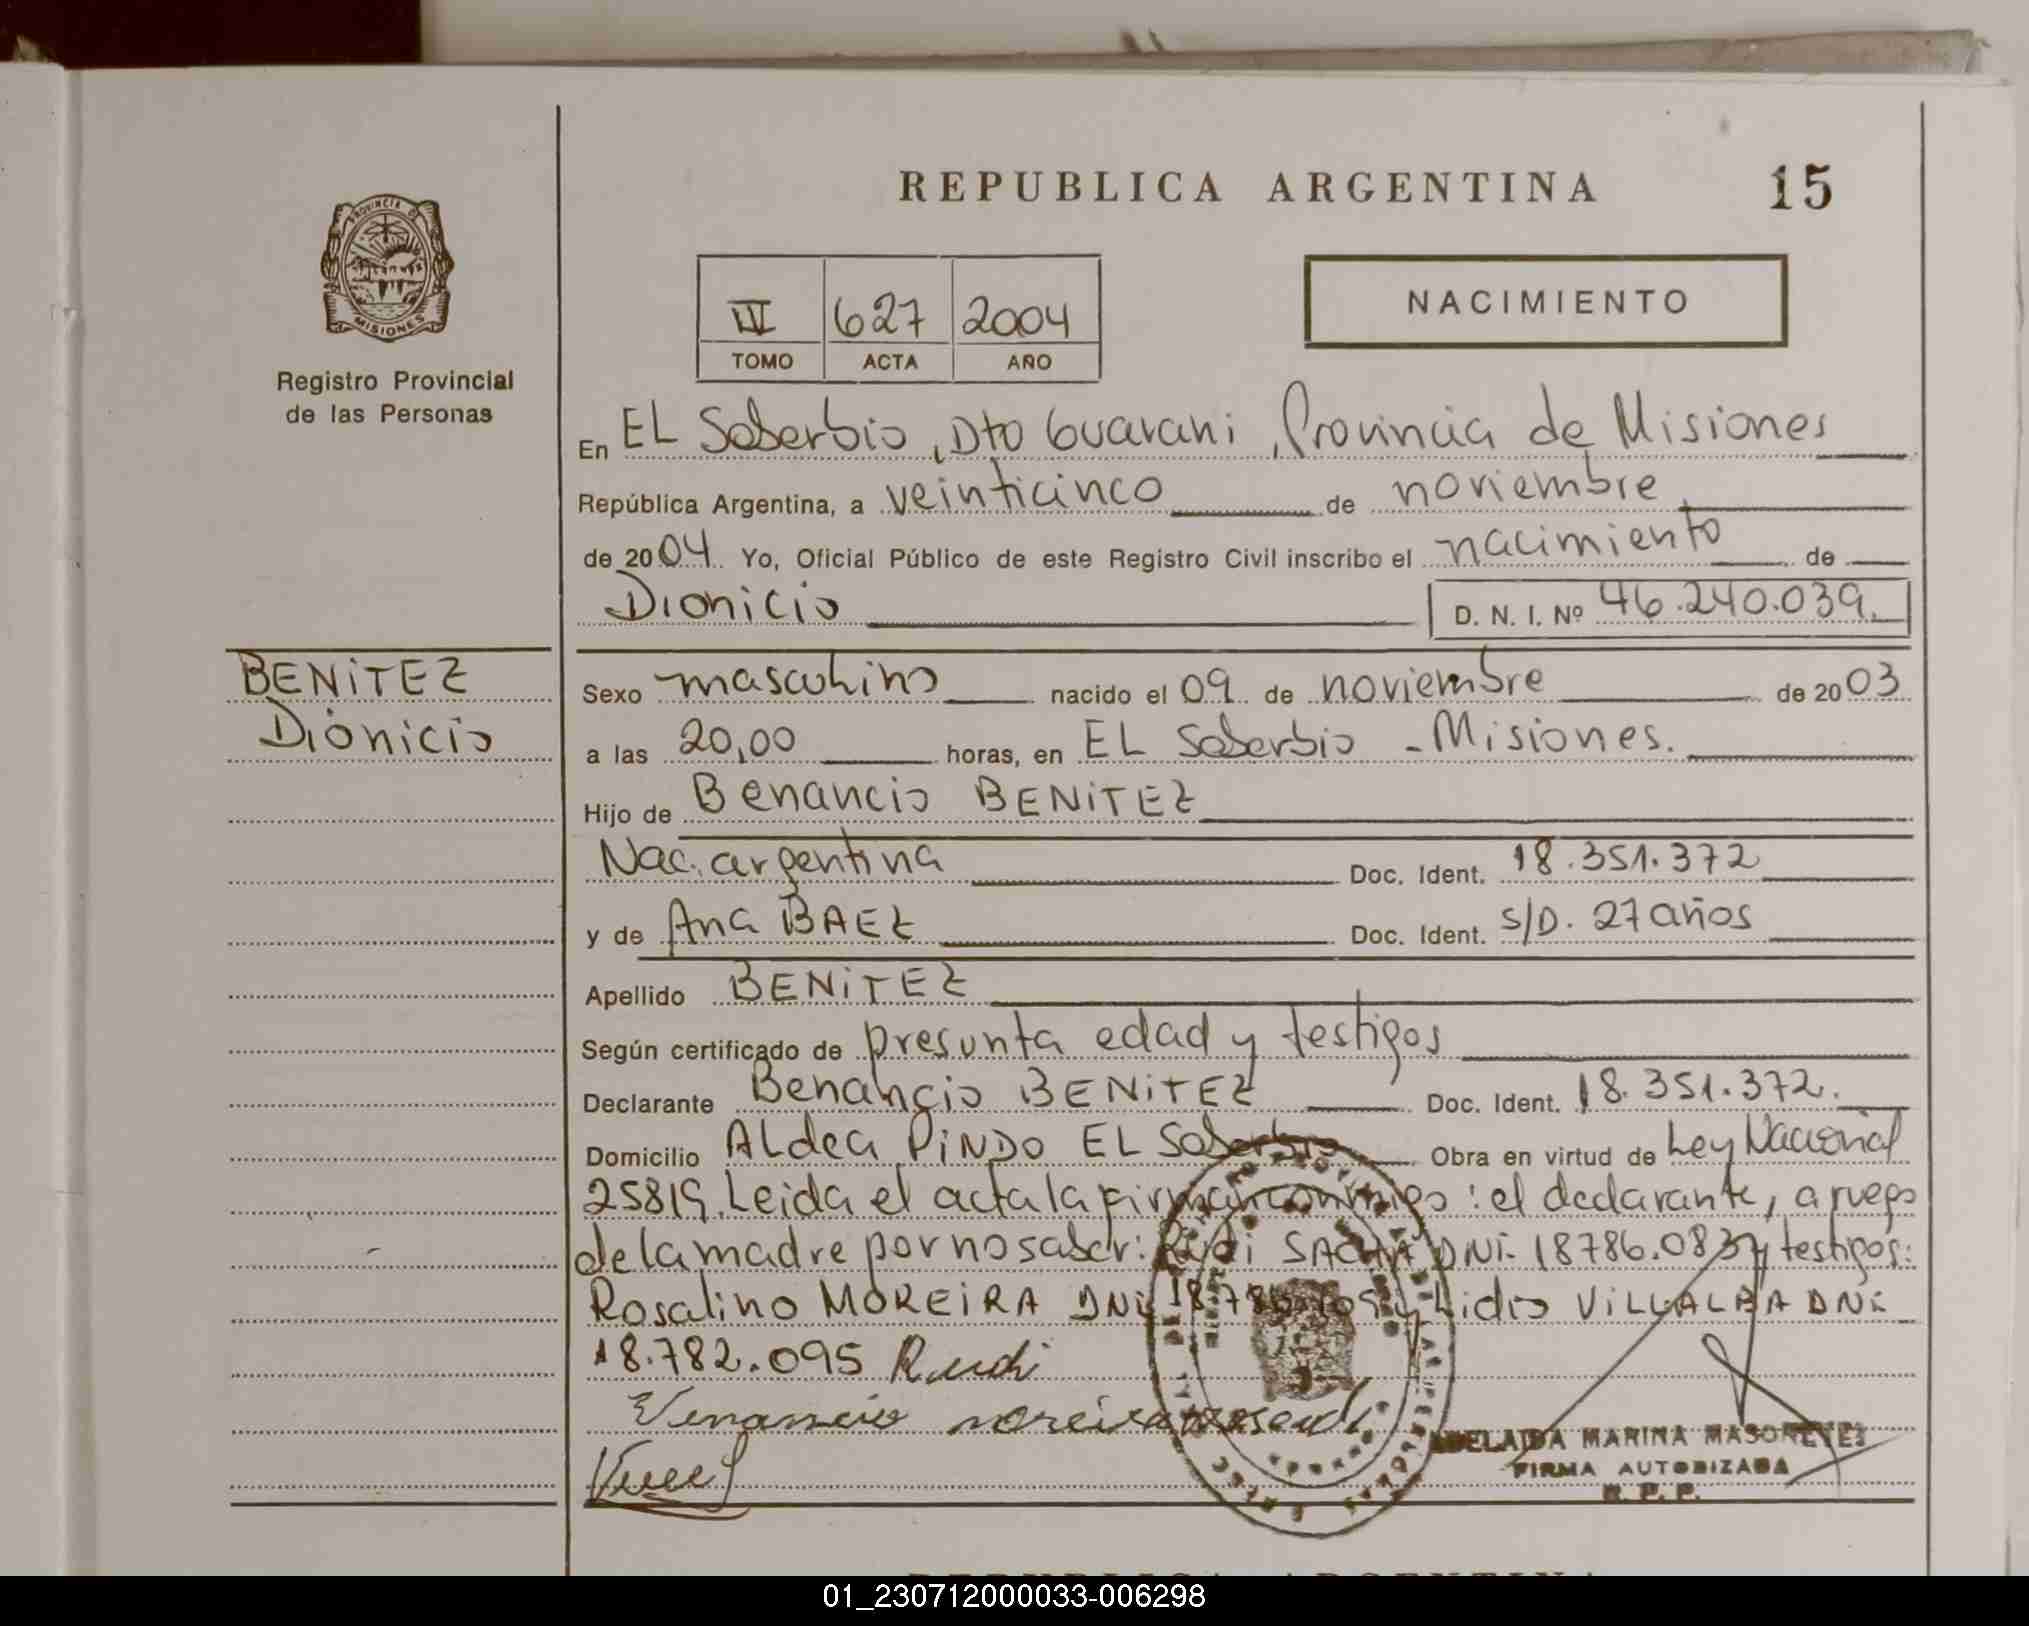 REPUBLICA ARGENTINA
15
PROVINCIA DE
MISIONES
Registro Provincial
de las Personas
III 627 2004
TOMO ACTA AÑO
NACIMIENTO
En EL Soberbio, Dto Guarani, Provincia de Misiones
República Argentina, a veinticinco de noviembre
de 2004. Yo, Oficial Público de este Registro Civil inscribo el nacimiento de
Dionicio D. N. I. Nº 46.240.039.
BENITEZ
Dionicio
Sexo masculino nacido el 09 de noviembre de 2003
a las 20,00 horas, en EL Soberbio - Misiones.
Hijo de Benancio BENITEZ
Nac. argentina Doc. Ident. 18.351.372
y de Ana BAEZ Doc. Ident. S/D. 27 años
Apellido BENITEZ
Según certificado de presunta edad y testigos
Declarante Benancio BENITEZ Doc. Ident. 18.351.372.
Domicilio ALdea PINDO EL Soberbio Obra en virtud de Ley Nacional
25819. Leida el acta la firman conmigo: el declarante, a ruego
de la madre por no saber: Rudi SACHA DNI- 18786.083 y testigos:
Rosalino MOREIRA DNI y Lidio VILLALBA DNI
18.782.095 Rudi
Venancio moreira
ADELAIDA MARINA
FIRMA AUTORIZADA
R. P. P.
01_230712000033-006298